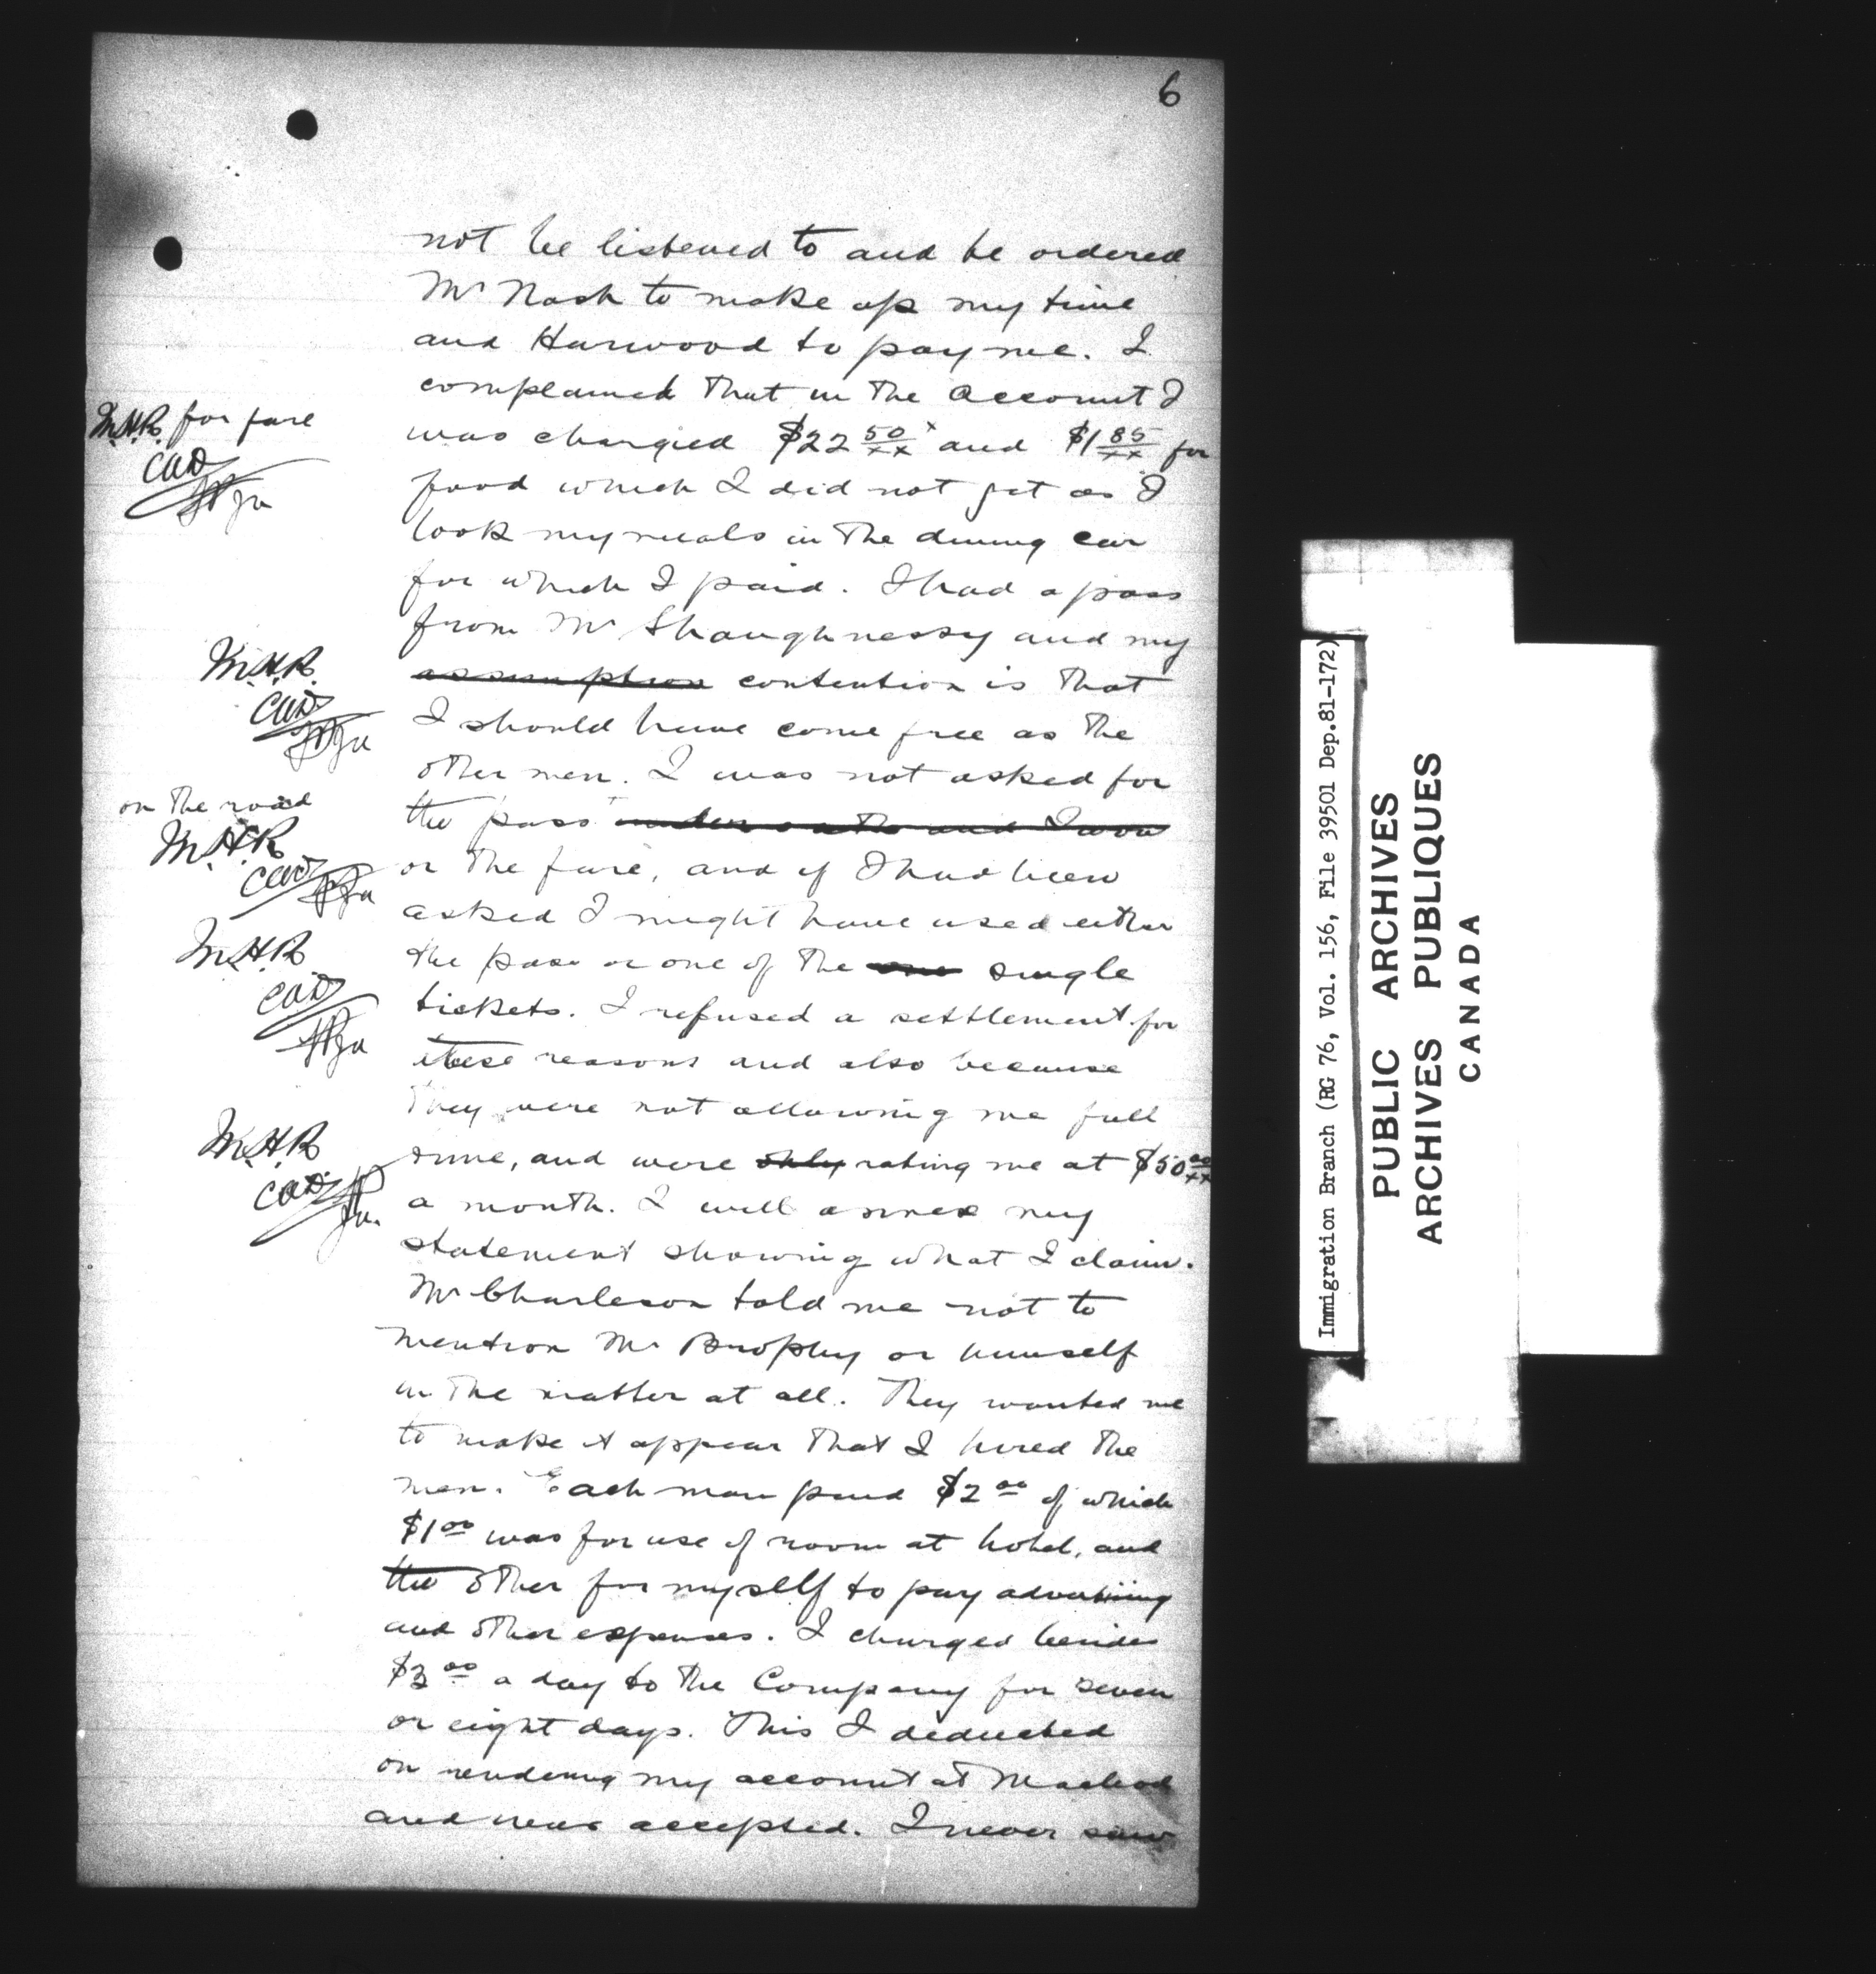 6
not be listened to and he ordered
Mr Nash to make up my time
and Harwood to pay me. I
complained that in the account I
M.H.R. for fare
was charged $22 50/xx x and $1 85/xx for
CAD
food which I did not get as I
took my meals in the dining car
for which I paid. I had a pass
from Mr Shaughnessy and my
M.H.R.
assumption contention is that
CAD
I should have come free as the
other men. I was not asked for
on the road
the pass under oath and I won
M.H.R
or the fare, and if I had been
CAD
asked I might have used either
M.H.R
the pass or one of the one single
CAD
tickets. I refused a settlement for
these reasons and also because
they were not allowing me full
M.H.R
time, and were only rating me at $50 00/xx
CAD
a month. I will annex my
statement showing what I claim.
Mr Charleson told me not to
mention Mr Brophy or himself
in the matter at all. They wanted me
to make it appear that I hired the
men. Each man paid $2 00 of which
$1 00 was for use of room at hotel, and
the other for myself to pay advertising
and other expenses. I charged besides
$3 00 a day to the Company for seven
or eight days. This I deducted
on rendering my account at Macleod
and was accepted. I never saw
Immigration Branch (RG 76, Vol. 156, File 39501 Dep.81-172)
PUBLIC ARCHIVES
ARCHIVES PUBLIQUES
CANADA